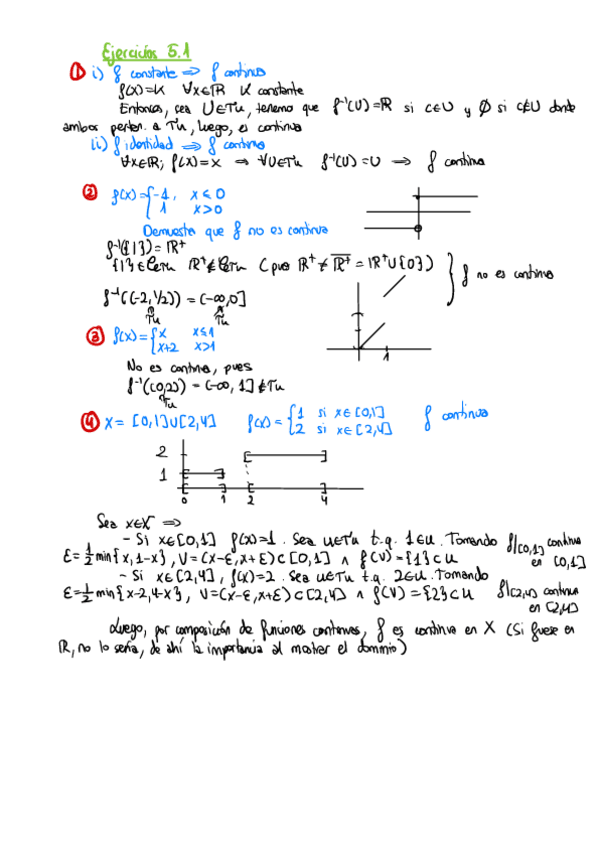 Ejercicios 5.1
① i) f constante ⇒ f continua
f(x)=K ∀x∈ℝ K constante
Entonces, sea U∈Tu, tenemos que f⁻¹(U)=ℝ si c∈U y ∅ si c∉U donde
ambos perten. a Tu, luego, es continua
ii) f identidad ⇒ f continua
∀x∈ℝ; f(x)=x ⇒ ∀U∈Tu f⁻¹(U)=U ⇒ f continua
② f(x)={-1, x≤0
1 x>0
Demuestra que f no es continua
f⁻¹({1})=ℝ⁺
{1}∈CTu ℝ⁺∉CTu (pues ℝ⁺≠ℝ⁺=ℝ⁺∪{0}) } f no es continua
f⁻¹((-2,1/2))=(-∞,0]
Tu Tu
③ f(x)={x x≤1
x+2 x>1
1
No es continua, pues
f⁻¹((0,2))=(-∞,1]∉Tu
Tu
④ X=[0,1]∪[2,4] f(x)={1 si x∈[0,1] f continua
2 si x∈[2,4]
2
1
0 1 2 4
Sea x∈X ⇒
- Si x∈[0,1] f(x)=1. Sea U∈Tu t.q. 1∈U. Tomando f|[0,1] continua
ε=1/2 min{x,1-x}, V=(x-ε,x+ε)⊂[0,1] ∧ f(V)={1}⊂U en [0,1]
- Si x∈[2,4], f(x)=2. Sea U∈Tu t.q. 2∈U. Tomando
ε=1/2 min{x-2,4-x}, V=(x-ε,x+ε)⊂[2,4] ∧ f(V)={2}⊂U f|[2,4] continua
en [2,4]
Luego, por composición de funciones continuas, f es continua en X (Si fuese en
ℝ, no lo sería, de ahí la importancia al mostrar el dominio)